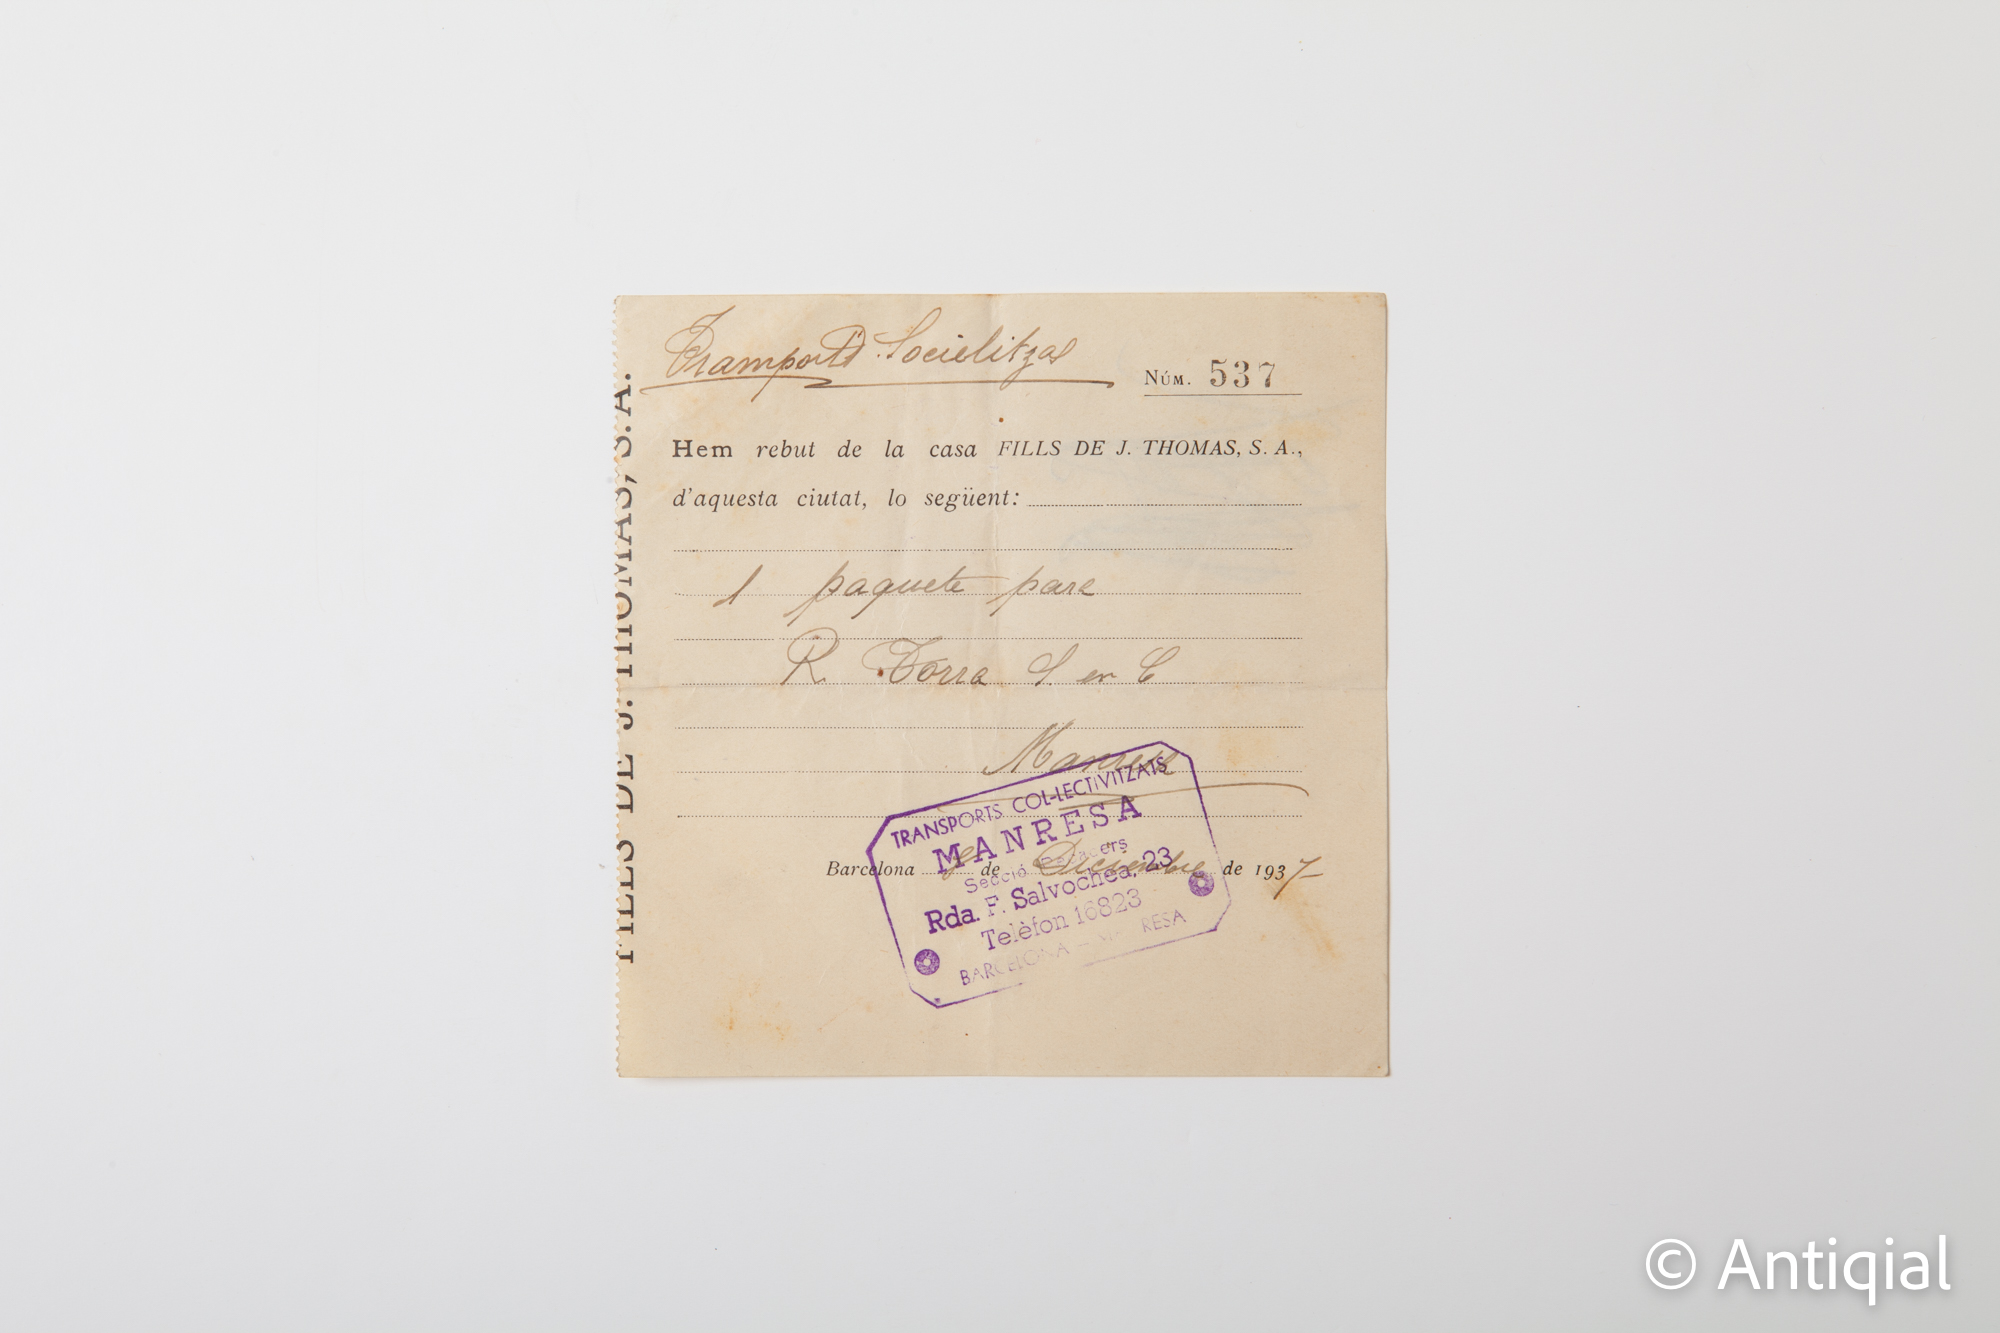 Transports Socialitzats
Núm. 537
Hem rebut de la casa FILLS DE J. THOMAS, S. A.,
d'aquesta ciutat, lo següent:
1 paquete para
R. Torra S. en C
Manresa
Barcelona de Diciembre de 1937
TRANSPORTS COL·LECTIVITZATS
MANRESA
Secció
Rda. F. Salvochea, 23
Telèfon 16823
BARCELONA - MANRESA
FILLS DE J. THOMAS, S. A.
© Antiqial